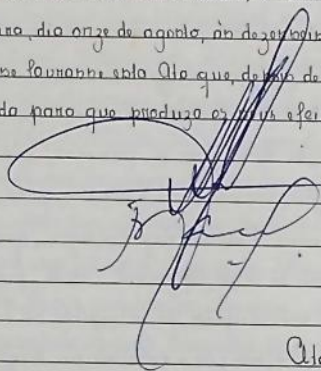 dia onze de agosto, às dezenove
lavrasse esta Ata que, depois de
da para que produza os seus efei
Ata